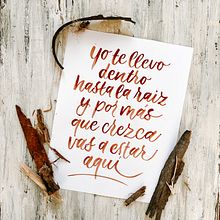 Yo te llevo
dentro
hasta la raíz
y por más
que crezca
vas a estar
aquí